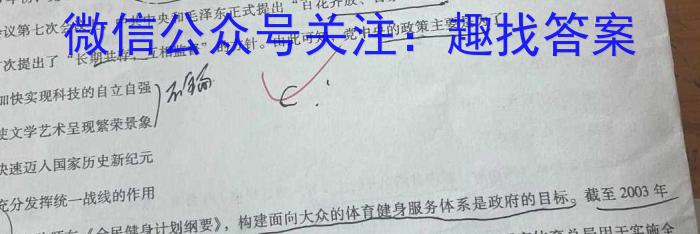 会议第七次会议
中央和毛泽东正式提出“百花齐放、百
微信公众号关注：趣找答案
次提出了“长期共存，互相监督”的方针。由此可知，党中央的政策主要是为了
加快实现科技的自立自强
使文学艺术呈现繁荣景象
快速迈入国家历史新纪元
充分发挥统一战线的作用
《全民健身计划纲要》，构建面向大众的体育健身服务体系是政府的目标。截至2003年
体育总局用于实施全